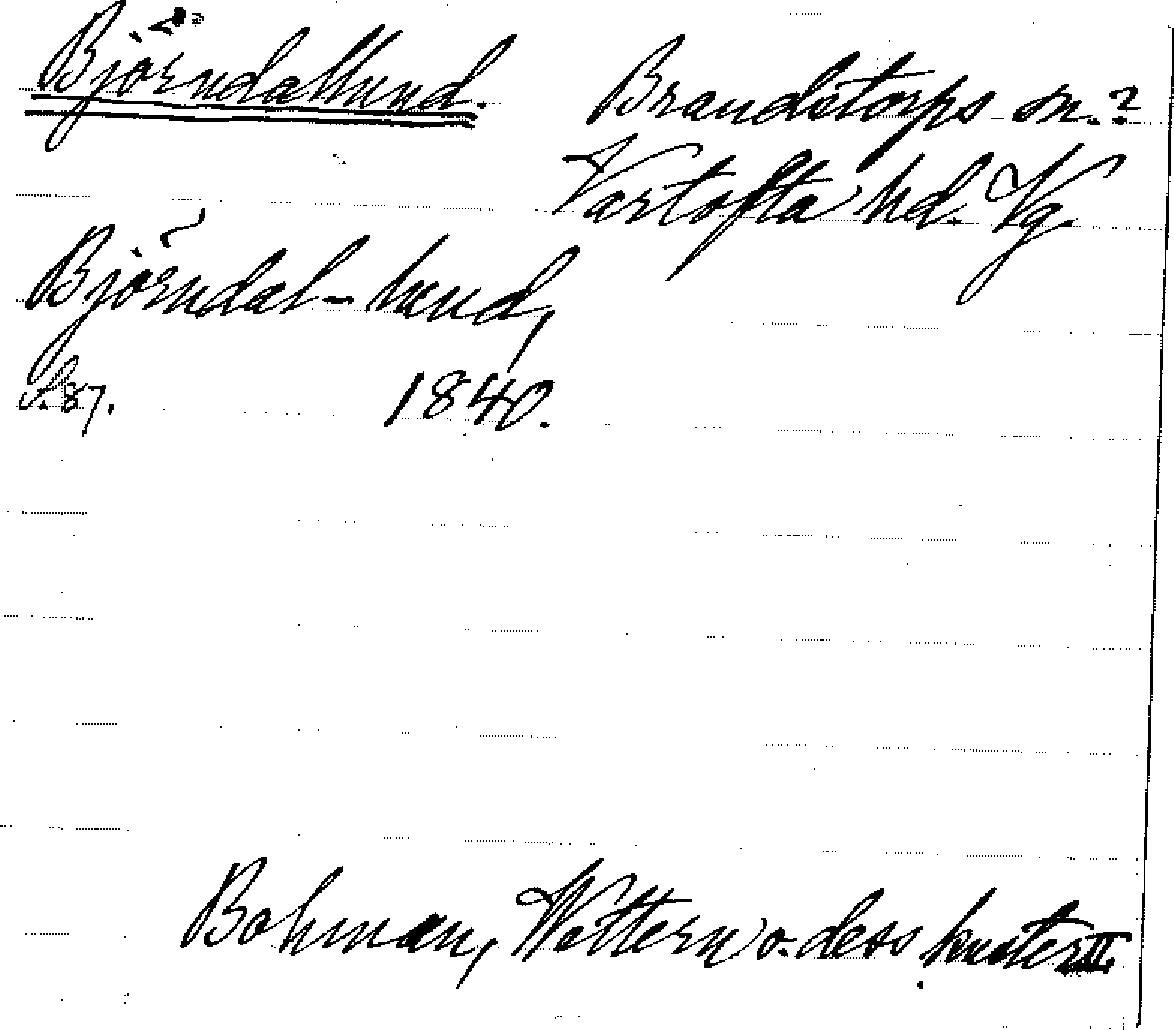 Björndallund.
Brandstorps sn.?
Vartofta hd. Vg.
Björndal-lund,
S. 87. 1840.
Bohman, Wettern o. dess kuster II.